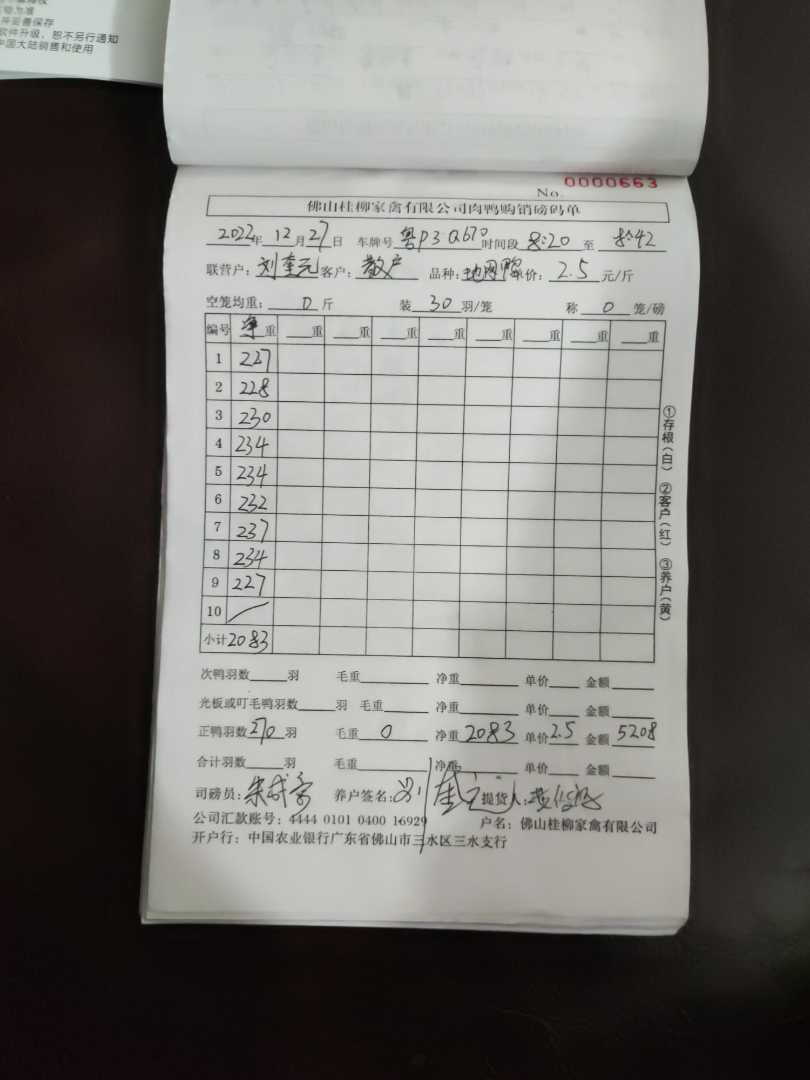 为准
并妥善保存
软件升级，恕不另行通知
中国大陆销售和使用
No. 0000663
佛山桂柳家禽有限公司肉鸭购销磅码单
2022年 12月27日 车牌号 粤P3Q670 时间段 8:20 至 8:42
联营户：刘奎元 客户：散户 品种：地网鸭 单价：2.5 元/斤
空笼均重：0 斤 装 30 羽/笼 称 0 笼/磅
编号 净重 重 重 重 重 重 重 重 重
1 227
2 228
3 230
4 234
5 234
6 232
7 237
8 234
9 227
10 /
小计 2083
①存根（白） ②客户（红） ③养户（黄）
次鸭羽数 羽 毛重 净重 单价 金额
光板或叮毛鸭羽数 羽 毛重 净重 单价 金额
正鸭羽数 270 羽 毛重 0 净重 2083 单价 2.5 金额 5208
合计羽数 羽 毛重 净重 单价 金额
司磅员： 养户签名：刘奎元 提货人：
公司汇款账号：4444 0101 0400 16929 户名：佛山桂柳家禽有限公司
开户行：中国农业银行广东省佛山市三水区三水支行